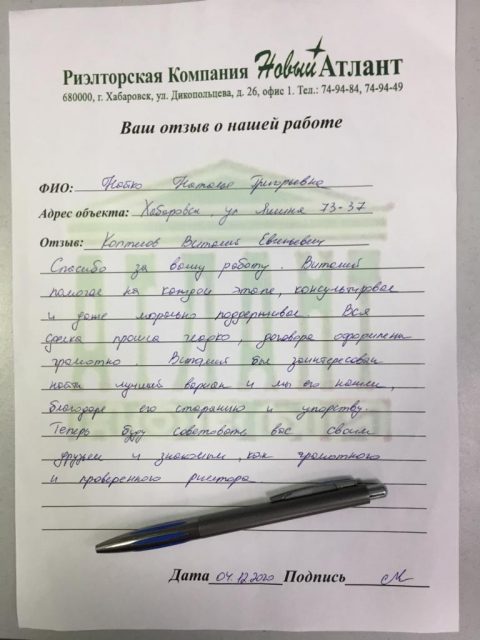 Риэлторская Компания Новый Атлант
680000, г. Хабаровск, ул. Дикопольцева, д. 26, офис 1. Тел.: 74-94-84, 74-94-49
Ваш отзыв о нашей работе
ФИО: Наталья Григорьевна
Адрес объекта: Хабаровск, ул Яшина 73-37
Отзыв: Виталий Евгеньевич
Спасибо за вашу работу. Виталий
помогал на каждом этапе, консультировал
и даже морально поддерживал. Вся
сделка прошла гладко, договора оформлены
грамотно. Виталий был заинтересован
найти лучший вариант и мы его нашли,
благодаря его старанию и упорству.
Теперь буду советовать вас своим
друзьям и знакомым, как грамотного
и проверенного риелтора
Дата 04.12.2020 Подпись